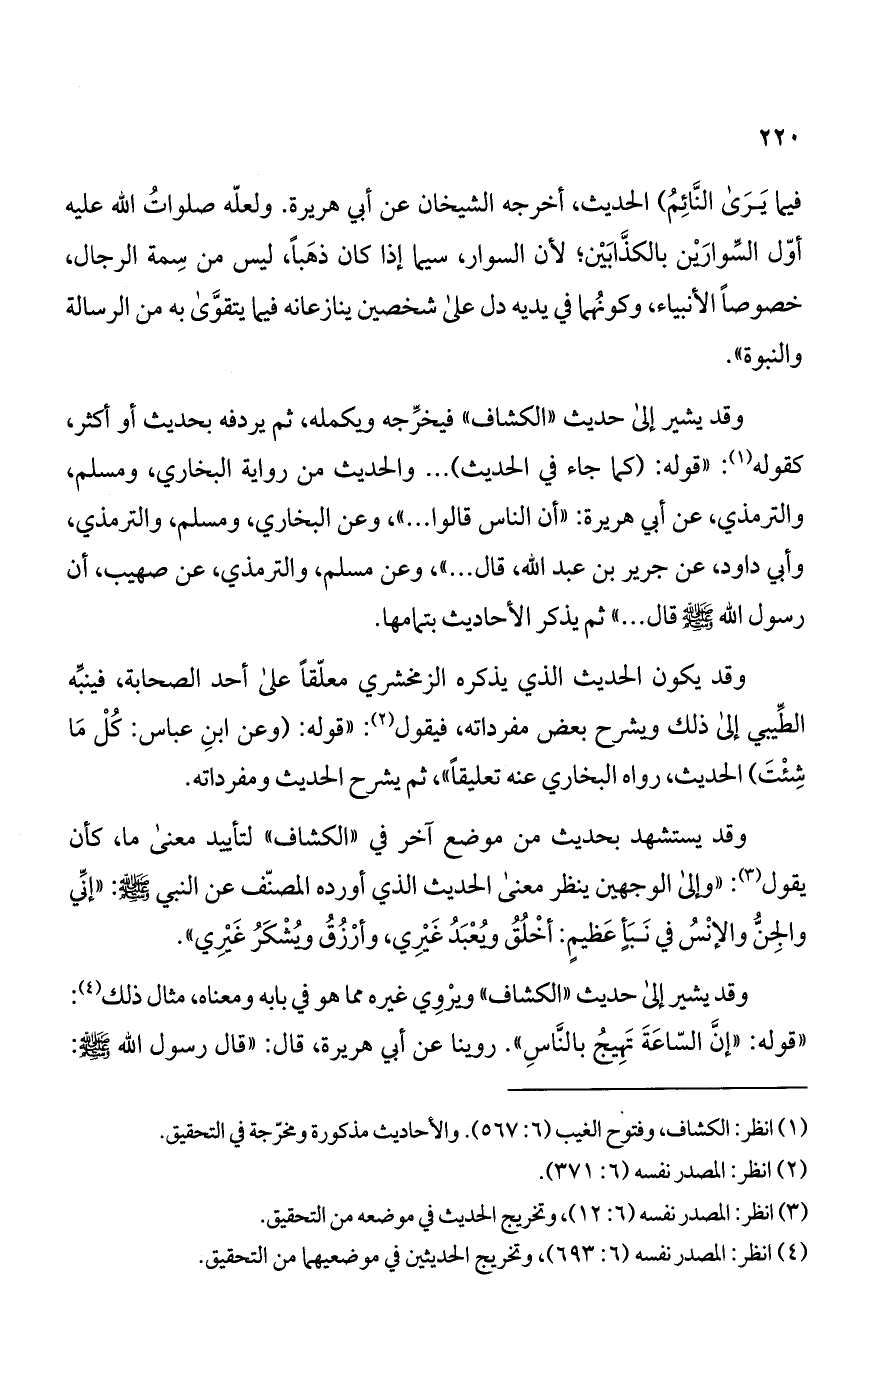 ٢٢٠
فيما يَـرَىٰ النَّائِمُ) الحديث، أخرجه الشيخان عن أبي هريرة. ولعلّه صلواتُ الله عليه
أوّل السِّوارَيْن بالكذَّابَيْن؛ لأن السوار، سيما إذا كان ذهَباً، ليس من سِمة الرجال،
خصوصاً الأنبياء، وكونُهما في يديه دل علىٰ شخصين ينازعانه فيما يتقوَّىٰ به من الرسالة
والنبوة».
وقد يشير إلىٰ حديث «الكشاف» فيخرِّجه ويكمله، ثم يردفه بحديث أو أكثر،
كقوله(١): «قوله: (كما جاء في الحديث)... والحديث من رواية البخاري، ومسلم،
والترمذي، عن أبي هريرة: «أن الناس قالوا...»، وعن البخاري، ومسلم، والترمذي،
وأبي داود، عن جرير بن عبد الله، قال...»، وعن مسلم، والترمذي، عن صهيب، أن
رسول الله ﷺ قال...» ثم يذكر الأحاديث بتمامها.
وقد يكون الحديث الذي يذكره الزمخشري معلّقاً علىٰ أحد الصحابة، فينبِّه
الطِّيبي إلىٰ ذلك ويشرح بعض مفرداته، فيقول(٢): «قوله: (وعن ابنِ عباس: كُلْ مَا
شِئْتَ) الحديث، رواه البخاري عنه تعليقاً»، ثم يشرح الحديث ومفرداته.
وقد يستشهد بحديث من موضع آخر في «الكشاف» لتأييد معنىٰ ما، كأن
يقول(٣): «وإلىٰ الوجهين ينظر معنىٰ الحديث الذي أورده المصنّف عن النبي ﷺ: «إنِّي
والجنُّ والإنْسُ في نَـبَأٍ عَظيمٍ: أخْلُقُ ويُعْبَدُ غَيْرِي، وأرْزُقُ ويُشْكَرُ غَيْرِي».
وقد يشير إلىٰ حديث «الكشاف» ويرْوِي غيره مما هو في بابه ومعناه، مثال ذلك(٤):
«قوله: «إنَّ السّاعَةَ تَهِيجُ بالنَّاسِ». روينا عن أبي هريرة، قال: «قال رسول الله ﷺ:
(١) انظر: الكشاف، وفتوح الغيب (٦: ٥٦٧). والأحاديث مذكورة ومخرّجة في التحقيق.
(٢) انظر: المصدر نفسه (٦: ٣٧١).
(٣) انظر: المصدر نفسه (٦: ١٢)، وتخريج الحديث في موضعه من التحقيق.
(٤) انظر: المصدر نفسه (٦: ٦٩٣)، وتخريج الحديثين في موضعيهما من التحقيق.